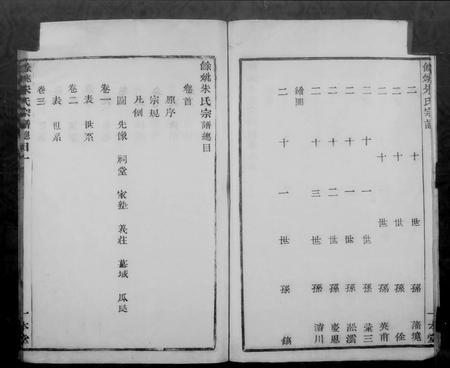 餘姚朱氏宗譜
二十世孫 濬堯
二十世孫 佺
二十世孫 英甫
二十一世孫
二十一世孫
二十二世孫 慶恩
二十三世孫 濬川
繪圖
二十一世孫 鎮
一本堂
餘姚朱氏宗譜總目
卷首
原序
宗規
凡例
圖 先像 祠堂 家塾 義莊 墓域 瓜瓞
卷一
表 世系
卷二
表 世系
卷三
餘姚朱氏宗譜總目 一
一本堂